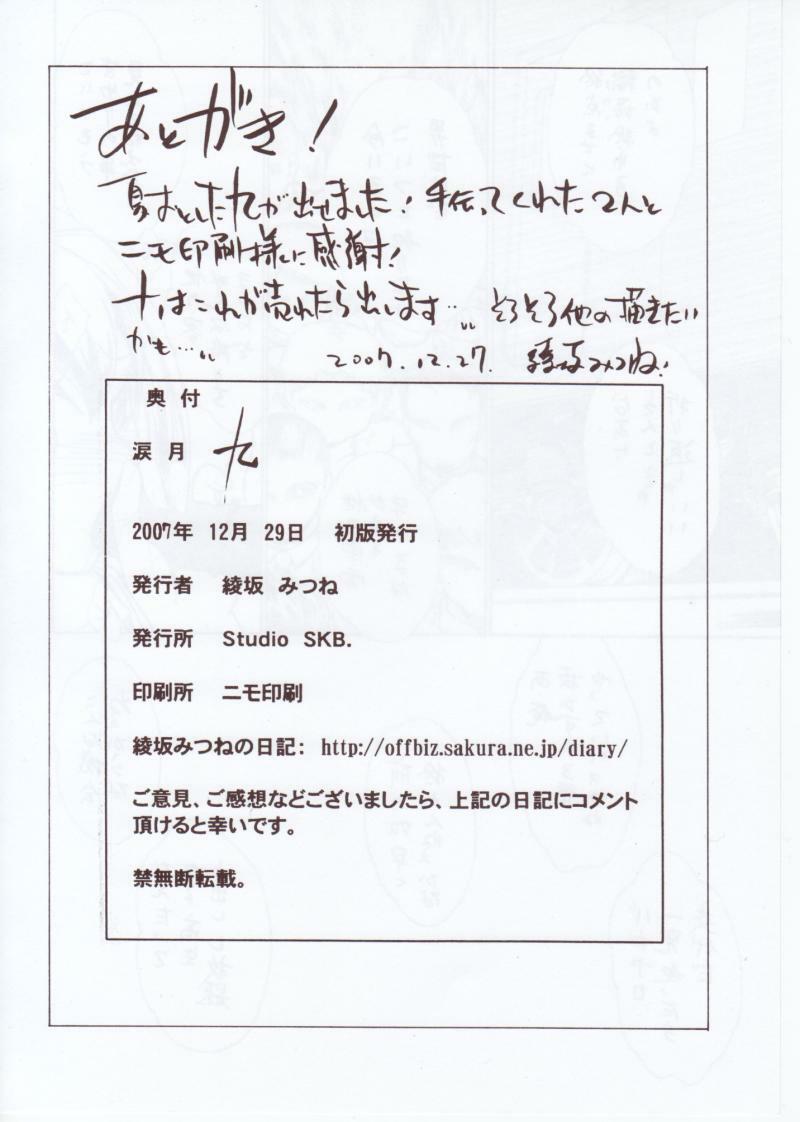 あとがき！
夏おとした九が出せました！手伝ってくれた2人と
ニモ印刷様に感謝！
十はこれが売れたら出します…。。そろそろ他の描きたい
かも…。。 2007.12.27. 綾坂みつね！
奥付
涙月 九
2007年 12月 29日 初版発行
発行者 綾坂 みつね
発行所 Studio SKB.
印刷所 ニモ印刷
綾坂みつねの日記： http://offbiz.sakura.ne.jp/diary/
ご意見、ご感想などございましたら、上記の日記にコメント
頂けると幸いです。
禁無断転載。